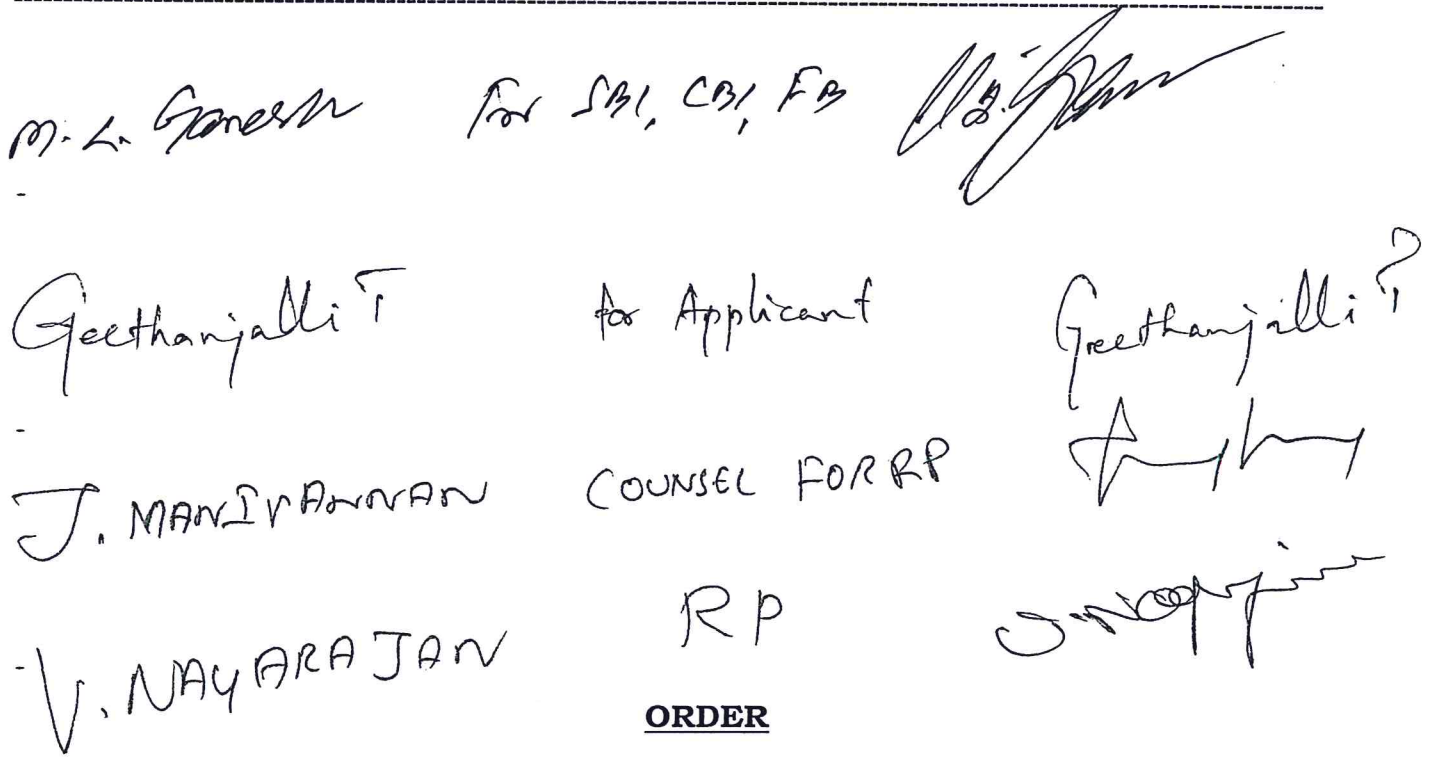 M. L. Ganesh for SBI, CBI, FB
Geethanjalli T for Applicant Geethanjalli T
J. MANIVANNAN COUNSEL FOR RP
V. NAYARAJAN RP
ORDER